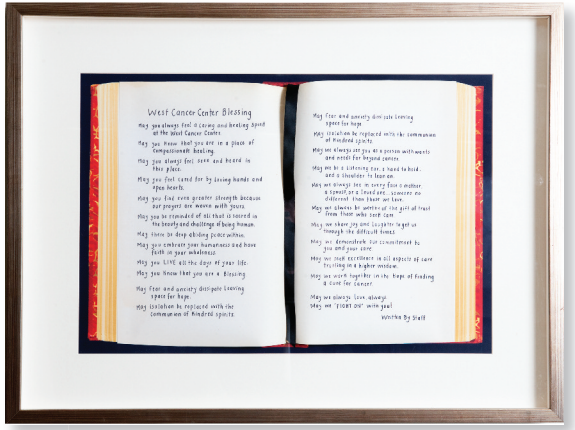 West Cancer Center Blessing
May you always feel a caring and healing spirit
at the West Cancer Center.
May you know that you are in a place of
compassionate healing.
May you always feel seen and heard in
this place.
May you feel cared for by loving hands and
open hearts.
May you find even greater strength because
our prayers are woven with yours.
May you be reminded of all that is sacred in
the beauty and challenge of being human.
May there be deep abiding peace within.
May you embrace your humanness and have
faith in your wholeness.
May you LIVE all the days of your life.
May you know that you are a blessing.
May fear and anxiety dissipate leaving
space for hope.
May isolation be replaced with the
communion of kindred spirits.
May fear and anxiety dissipate leaving
space for hope.
May isolation be replaced with the communion
of kindred spirits.
May we always see you as a person with wants
and needs far beyond cancer.
May we be a listening ear, a hand to hold,
and a shoulder to lean on.
May we always see in every face a mother,
a spouse, or a loved one... someone no
different than those we love.
May we always be worthy of the gift of trust
from those who seek care.
May we share joy and laughter to get us
through the difficult times.
May we demonstrate our commitment to
you and your care.
May we seek excellence in all aspects of care
trusting in a higher wisdom.
May we work together in the hope of finding
a cure for cancer.
May we always love, always
May we "FIGHT ON" with you!
Written By Staff